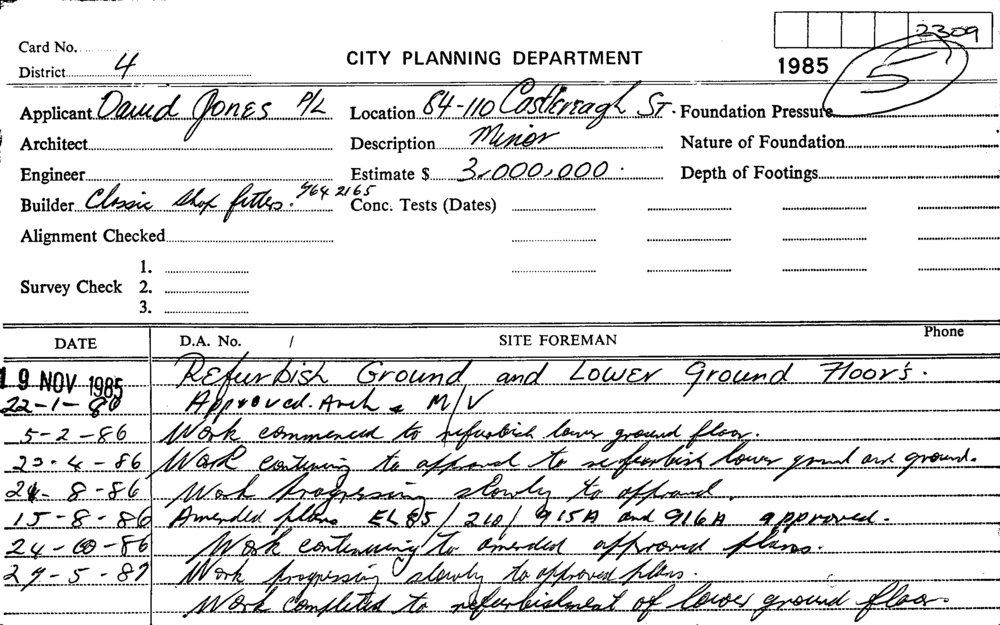 2309
Card No.
District 4
CITY PLANNING DEPARTMENT
1985
5
Applicant David Jones P/L
Location 84-110 Castlereagh St.
Foundation Pressure
Architect
Description Minor
Nature of Foundation
Engineer
Estimate $ 3,000,000.
Depth of Footings
Builder Classic Shop fitters. 964 2165
Conc. Tests (Dates)
Alignment Checked
1.
Survey Check 2.
3.
DATE D.A. No. / SITE FOREMAN Phone
19 NOV 1985 Refurbish Ground and Lower Ground Floor's.
22-1-86 Approved. Arch & M/V
5-2-86 Work commenced to refurbish lower ground floor.
23-4-86 Work continuing to approval to refurbish lower grnd and ground.
-8-86 Work progressing slowly to approval.
15-8-86 Amended plans EL85/210/915A and 916A approved.
24-10-86 Work continuing to amended approved plans.
29-5-87 Work progressing slowly to approved plans.
Work completed to refurbishment of lower ground floor.